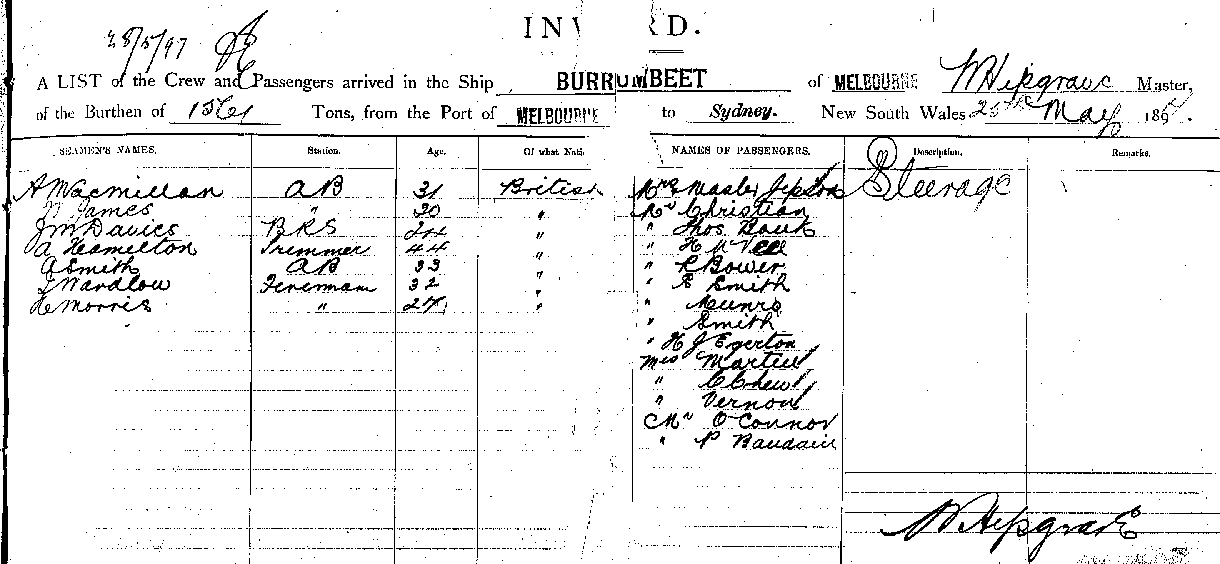 INW RD.
28/5/97
A LIST of the Crew and Passengers arrived in the Ship BURRUMBEET of MELBOURNE W Hipgrave Master,
of the Burthen of Tons, from the Port of MELBOURNE to Sydney. New South Wales 25th May 189
SEAMEN'S NAMES. Station. Age. Of what Nati NAMES OF PASSENGERS. Description. Remarks.
A Macmillan AB 31 British Mrs & Master Jepson Steerage
James " 30 " Mr Christian
J M Davies BKS 24 " " Thos
A Hamilton Trimmer 44 " " H
A Smith AB 33 " " R Bower
J Wardlow Fireman 32 " " E Smith
H Morris " 27 " " Munro
" Smith
" H J Egerton
Mrs Martin
" C Chew
" Vernon
Mr O'Connor
" P Baudain
W Hipgrave